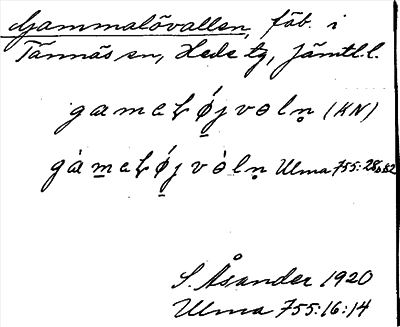 Gammalövallen, fäb. i
Tännäs sn, Hede tg, Jämtl.l.
gamaɫǿ̨jvəlṇ (KN)
gàm̱aɫǿ̱jvàlṇ Ulma 755:28b:82
S. Åsander 1920
Ulma 755:16:14